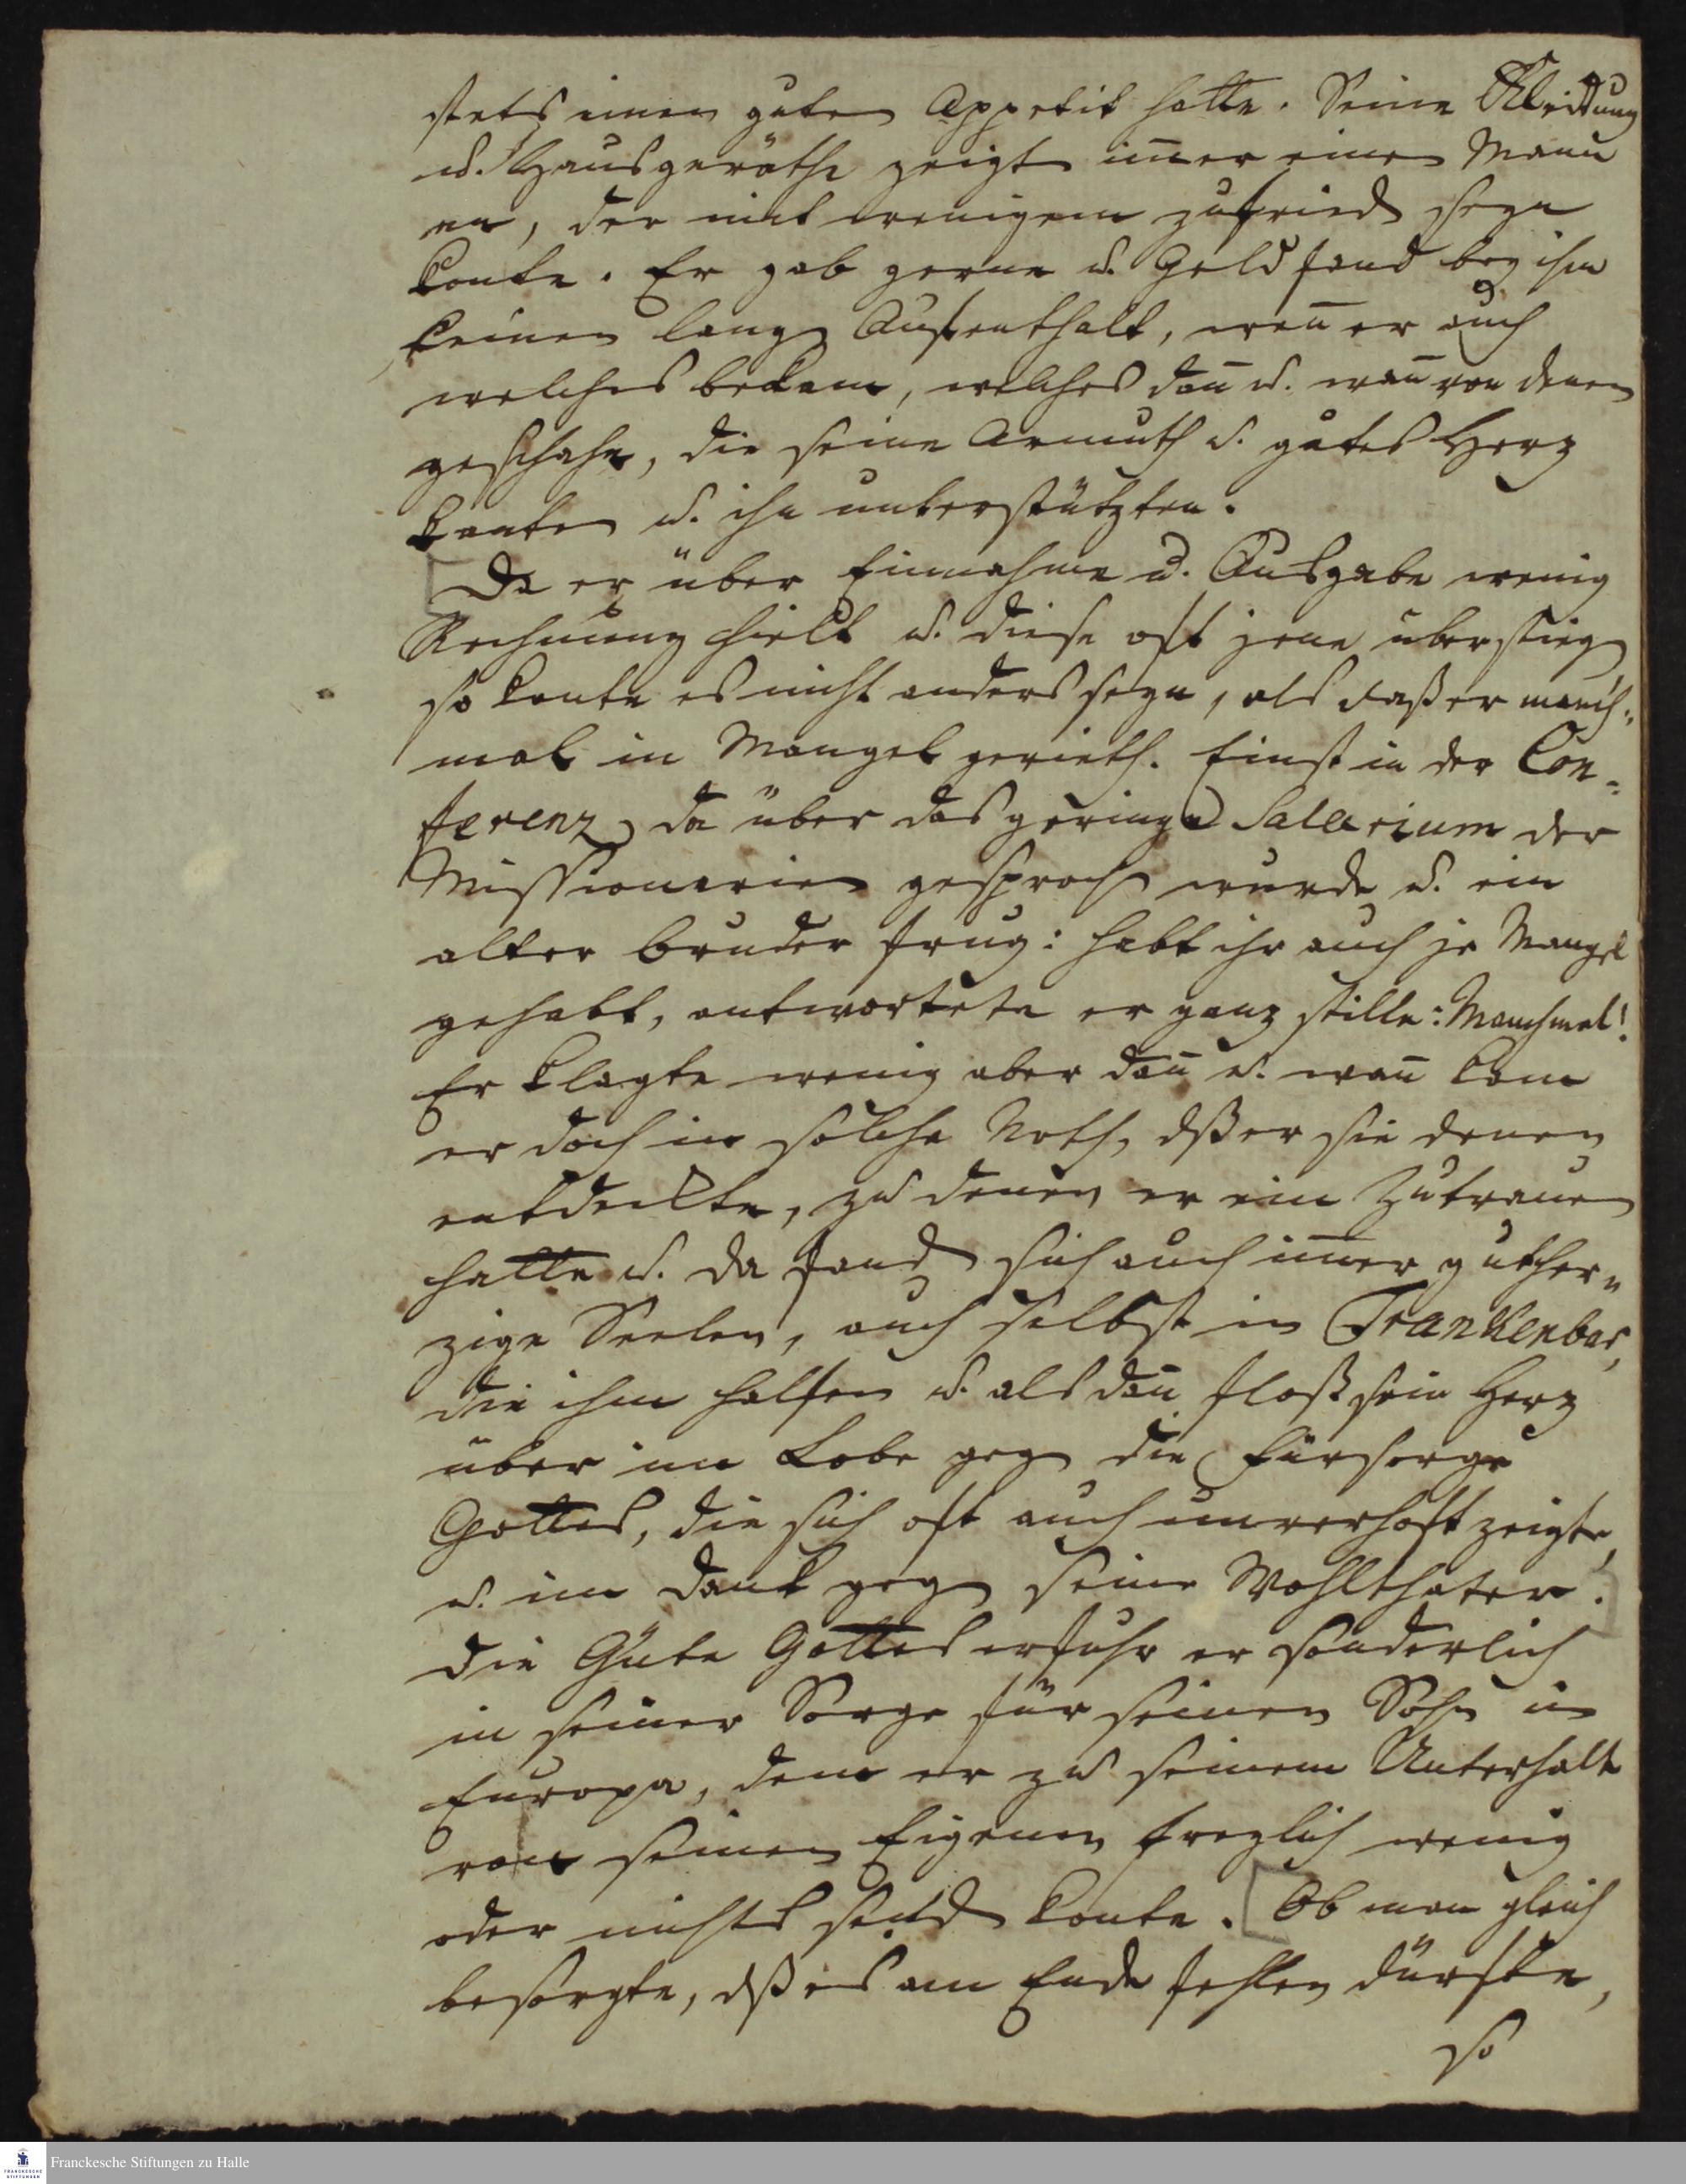 stets einen guten Appetit hatte. Seine Kleidung
u. Hausgeräthe zeigte im̅er einen Mann
an, der mit wenigem zufried seyn
konte. Er gab gerne u. Geld fand bey ihm
keinen lang Aufenthalt, wen̅ er auch
welches bekam, welches dan̅ u. wan̅ von denen
geschahe, die seine Armuth u. gutes Herz
kanten u. ihn unterstützten.
Da er über Einnahme u. Ausgabe wenig
Rechnung hielt u. diese oft jene überstieg
so konte es nicht anders seyn, als daß er manch-
mal in Mangel gerieth. Einst in der Con-
ferenz, da über das geringe Salarium der
Missionarien gesproch wurde u. ein
alter Bruder frug: habt ihr auch je Mangel
gehabt, antwortete er ganz stille: Manchmal!
Er klagte wenig aber dan̅ u. wan̅ kam
er doch in solche Noth, dß er sie denen
entdeckte, zu denen er ein Zutrauen
hatte u. da fand sich auch im̅er guther-
zige Seelen, auch selbst in Trankenbar,
die ihm halfen u. als dan̅ floß sein Herz
über im Lobe geg die Fürsorge
Gottes, die sich oft auch unverhoft zeigte,
u. im Dank geg seine Wohlthäter.
Die Güte Gottes erfuhr er sonderlich
in seiner Sorge für seinen Sohn in
Europa, dem er zu seinem Unterhalte
von seinem Eigenen freylich wenig
oder nichts send konte. Ob man gleich
besorgte, dß es am Ende fehlen dürfte,
so
Franckesche Stiftungen zu Halle
FRANCKESCHE
STIFTUNGEN